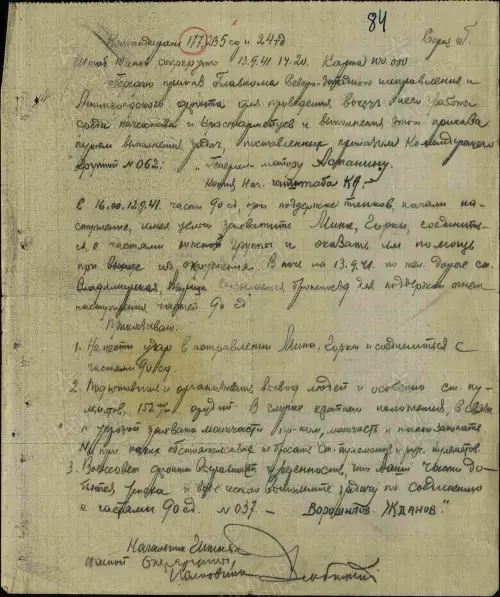 84
Командирам 177, 235 сд и 24 тд Серия Г.
Штаб 13.9.41 14.20. Карта 100 000
Передаю приказ Главкома Северо-Западного направления и
Ленинградского фронта для проведения вокруг него работы
среди начсостава и красноармейцев и выполнения этого приказа
путем выполнения задач, поставленных приказом Командующего
группой № 062: "Генерал-майору Астанину.
Копия Нач. Генштаба КА.-
С 16.00. 12.9.41. части 90 сд, при поддержке танков, начали на-
ступление, имея целью захватить Мина, Горки, соединить-
ся с частями южной группы и оказать им помощь
при выходе из окружения. В ночь на 13.9.41. по жел. дороге ст.
Владимирская, высылается бронепоезд для поддержки огнем
наступления частей 90 сд.
Приказываю:
1. Нанести удар в направлении Мина, Горки и соединиться с
частями 90 сд.
2. и организовать вывод людей и особенно ст. пу-
леметов, 152 м/м орудий. В случае крайнего положения, в связи
с угрозой захвата матчасти пр-ком, матчасть и танки закопать.
Ни при каких обстоятельствах не бросать ст. пулеметов и руч. пулеметов.
3. Военсовет фронта выражает уверенность, что ваши части до-
бьются успеха и выполните задачу по соединению
с частями 90 сд. № 037 - Ворошилов. Жданов."
Начальник Штаба
Южной Опергруппы
Полковник